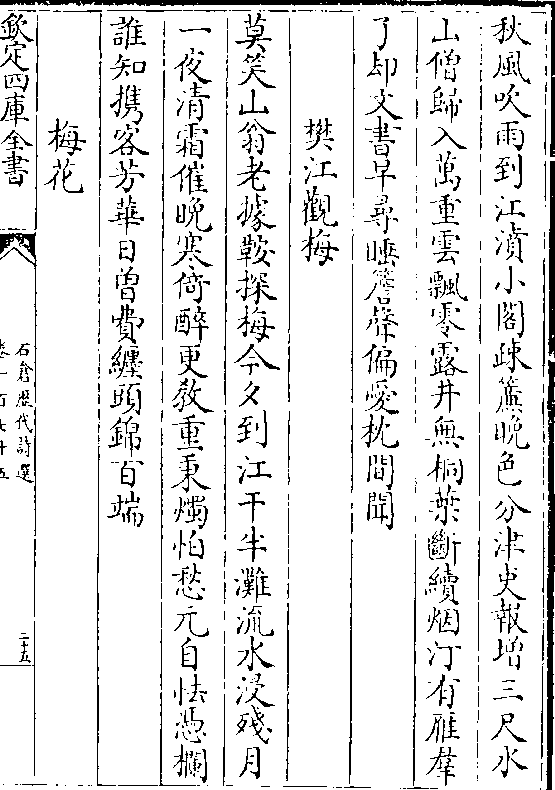 秋風吹雨到江濆小閣疎簾晚色分津吏報增三尺水
山僧歸入萬重雲飄零露井無桐葉斷續烟汀有雁羣
了却文書早尋睡簷聲偏愛枕間聞
樊江觀梅
莫笑山翁老據鞍探梅今夕到江干半灘流水浸殘月
一夜清霜催曉寒倚醉更教重秉燭怕愁元自怯憑欄
誰知携客芳華日曾費纏頭錦百端
梅花
欽定四庫全書
石倉歷代詩選
二十五